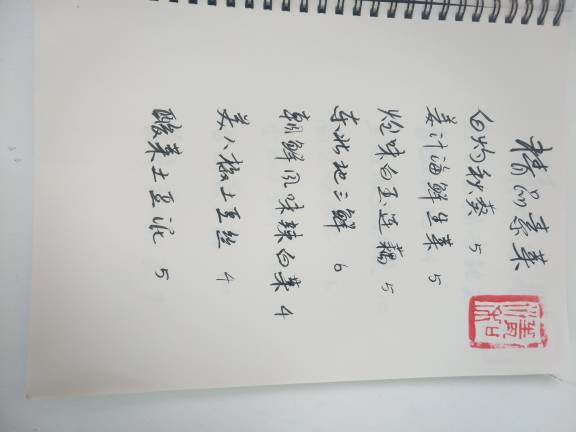 精品素菜
白灼秋葵 5
姜汁海鲜生菜 5
炝味白玉莲藕 5
东北地三鲜 6
朝鲜风味辣白菜 4
美人椒土豆丝 4
酸菜土豆泥 5